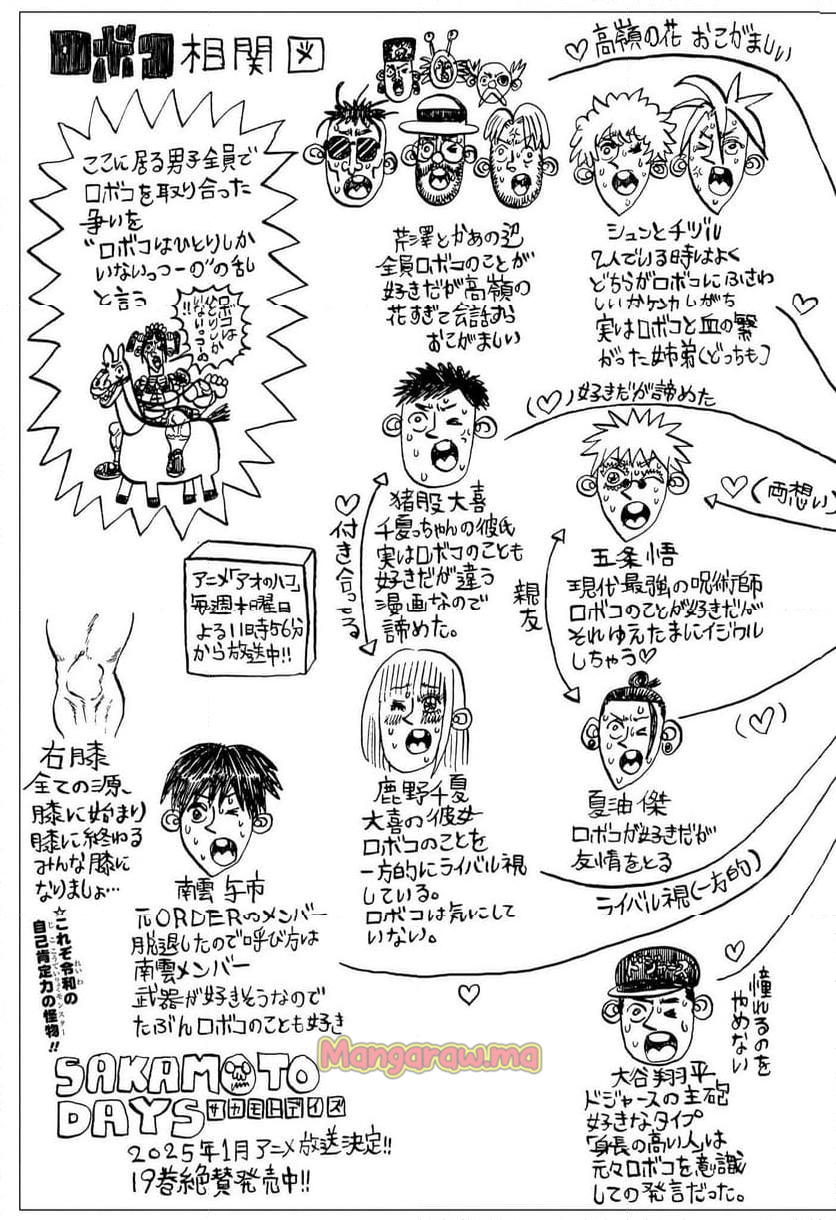 ロボコ相関図
ここに居る男子全員で
ロボコを取り合った
争いを
"ロボコはひとりしか
いないっつーの"の乱
と言う
ロボコは
ひとりしか
いないっつーの
!!
♡高嶺の花 おこがましい
芹澤とかあの辺
全員ロボコのことが
好きだが高嶺の
花すぎて会話すら
おこがましい
シュンとチヅル
2人でいる時はよく
どちらがロボコにふさわ
しいかケンカしがち
実はロボコと血の繋
がった姉弟(どっちも)
♡
(♡)好きだが諦めた
猪股大喜
千夏っちゃんの彼氏
実はロボコのことも
好きだが違う
漫画なので
諦めた。
♡付き合ってる
♡(両想い)
五条悟
現代最強の呪術師
ロボコのことが好きだが
それゆえたまにイジワル
しちゃう♡
親友
アニメ「アオのハコ」
毎週土曜日
よる11時56分
から放送中!!
鹿野千夏
大喜の彼女
ロボコのことを
一方的にライバル視
している。
ロボコは気にして
いない。
(♡)
夏油傑
ロボコが好きだが
友情をとる
ライバル視(一方的)
右膝
全ての源、
膝に始まり
膝に終わる
みんな膝に
なりましょ…
☆これぞ令和の
自己肯定力の怪物!!
南雲与市
元ORDERのメンバー
脱退したので呼び方は
南雲メンバー
武器が好きそうなので
たぶんロボコのことも好き
♡
憧れるのを
やめない
ドジャース
大谷翔平
ドジャースの主砲
好きなタイプ
「身長の高い人」は
元々ロボコを意識
しての発言だった。
SAKAMOTO
DAYS サカモトデイズ
2025年1月アニメ放送決定!!
19巻絶賛発売中!!
Mangaraw.ma